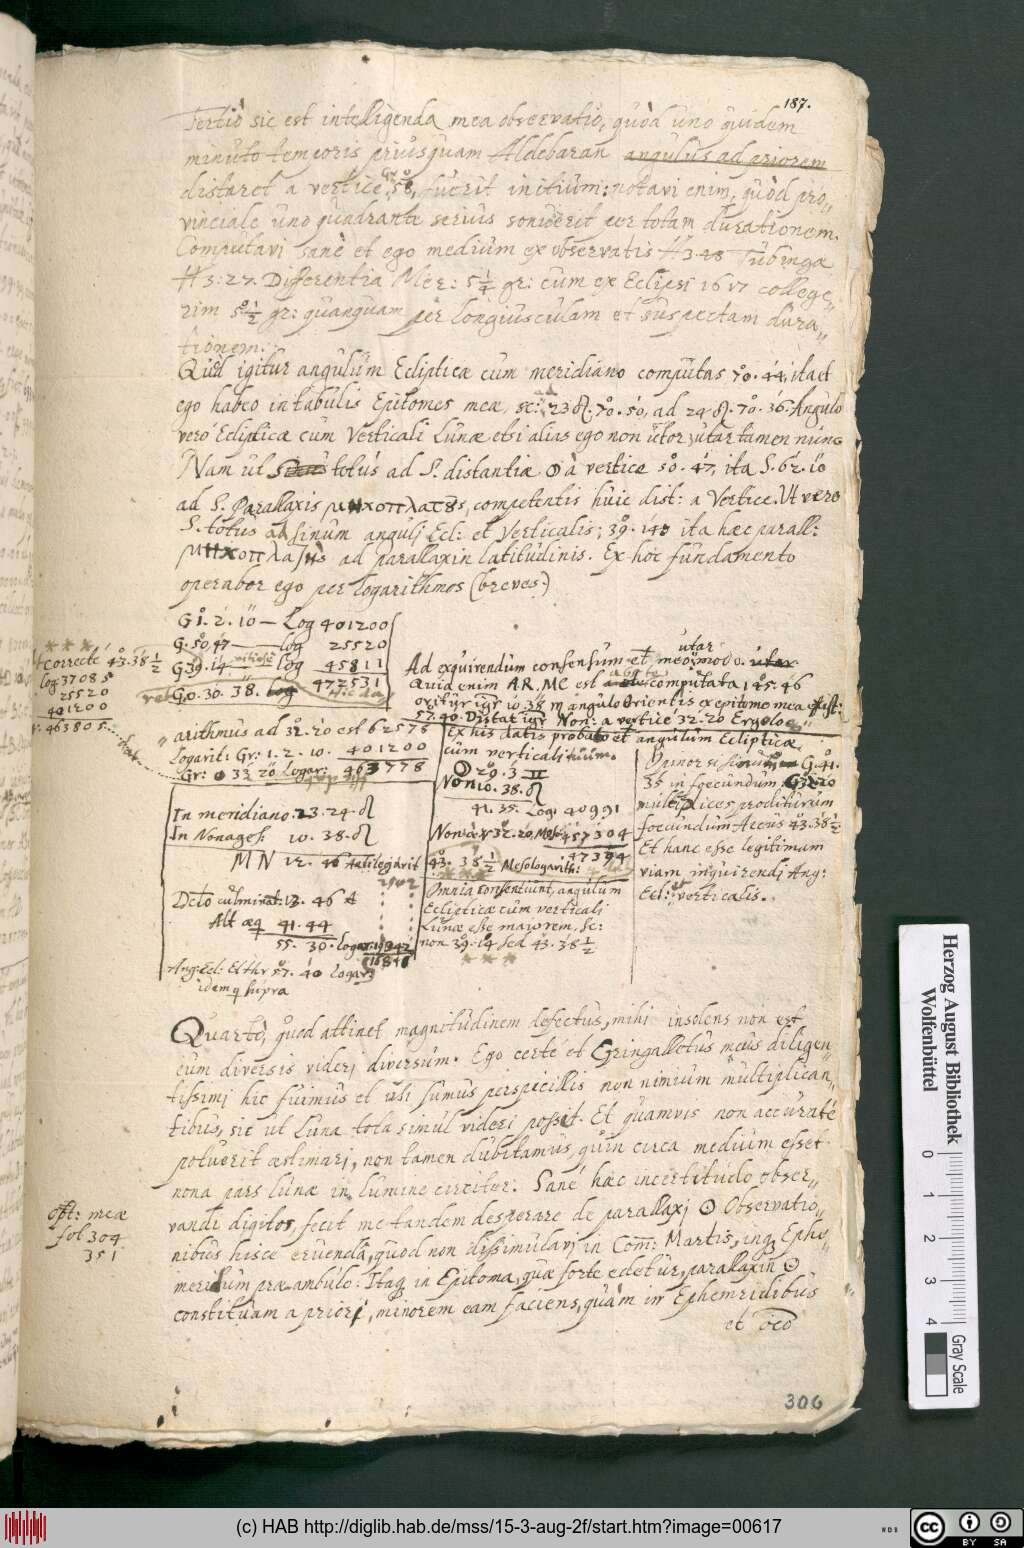 187.
Tertiò sic est intelligenda mea observatio, quòd uno quidem
minuto temporis priusquam Aldebaran angulus ad priorem
distaret a vertice 58, fuerit initium: notavi enim, quòd pro„
vinciale uno quadrante serius sonuerit per totam durationem.
Computavi sanè et ego medium ex observatis H 3.48 Tubingæ
H 3:27. Differentia Mer: 5 1/4 gr: cum ex Eclipsi 1617 college„
rim 5 1/2 gr: quanquam per longiusculam et suspectam dura„
tionem.
Quòd igitur angulum Eclipticæ cum meridiano computas 70.44, ita et
ego habeo in tabulis Epitomes meæ, sc: ad 23 ♌. 70.50, ad 24 ♌. 70.36. Angulo
verò Eclipticæ cum Verticali Lunæ etsi alias ego non utor, utar tamen nunc
Nam ut totus ad S. distantiæ ☉ à vertice 50.47, ita S. 62.10
ad S. Parallaxis μηκοπλατ8s, competentis huic dist: a Vertice. Ut vero
S. totus ad sinum anguli Ecl: et Verticalis; 39.14, ita hæc parall:
ad parallaxin latitudinis. Ex hoc fundamento
operabor ego per logarithmos (breves.)
G 1. 2. 10 — Log 401200
G. 50.47 — log 25520
G. 39.14 log 45811
G. 0. 30. 38. log 472531
✳✳✳
correctè 43.38 1/2
log 37085
25520
401200
463805
Ad exquirendum consensum et meo modo. utar
Quia enim AR. MC est computata 145.46
oritur igr 10.38 ♏ angulo Orientis ex epitome mea
57.40. Distat igr Non: a vertice 32.20 Ergo
Ex his datis probato et angulum Eclipticæ
cum verticali tuum.
☉ 29. 3 ♊
Non 10. 38. ♌
41. 35. Log. 40991
Non à v 32.20. Mes: 457304
47394
43. 38 1/2 Mesologarith:
Omnia consentiunt, angulum
Eclipticæ cum verticali
Lunæ esse maiorem, sc:
non 39.14 sed 43.38 1/2
✳✳✳
G. 41.
35 in foecundum G 32.20
multiplices, proditurum
foecundum Arcus 43.38 1/2
Et hanc esse legitimam
viam inquirendi Ang:
Ecl: et verticalis.
arithmus ad 32.20 est 62578
Logarit: Gr: 1. 2. 10. 401200
Gr: 0 33 20 Logar: 463778
In meridiano. 23.24. ♌
In Nonages: 10. 38. ♌
MN 12. 46 Antilogarit
Dcto culminat: 13. 46
Alt æq 41.44
55. 30. Logar. 19342
Ang: Ecl: El hr 57. 40 Logar:
idemq supra
Quartò, quod attinet magnitudinem defectus, mihi insolens non est
eum diversis videri diversum. Ego certè et Gringalletus meus diligen„
tissimi hic fuimus et usi sumus perspicillis non nimium multiplican„
tibus, sic ut Luna tota simul videri posset. Et quamvis non accuratè
potuerit æstimari, non tamen dubitamus, quin circa medium esset
nona pars Lunæ in lumine circiter. Sanè hæc incertitudo obser„
vandi digitos, fecit me tandem desperare de parallaxi ☉ Observatio„
nibus hisce eruenda, quod non dissimulavi in Com: Martis, inq Ephe„
meridum præambulo: Itaq in Epitoma, quæ forte edetur, parallaxin ☉
constituam a priori, minorem eam faciens, quàm in Ephemeridibus
opt: meæ
fol 304
351
et oco
306
Herzog August Bibliothek
Wolfenbüttel
0 1 2 3 4
Gray Scale
(c) HAB http://diglib.hab.de/mss/15-3-aug-2f/start.htm?image=00617
WDB
cc BY SA